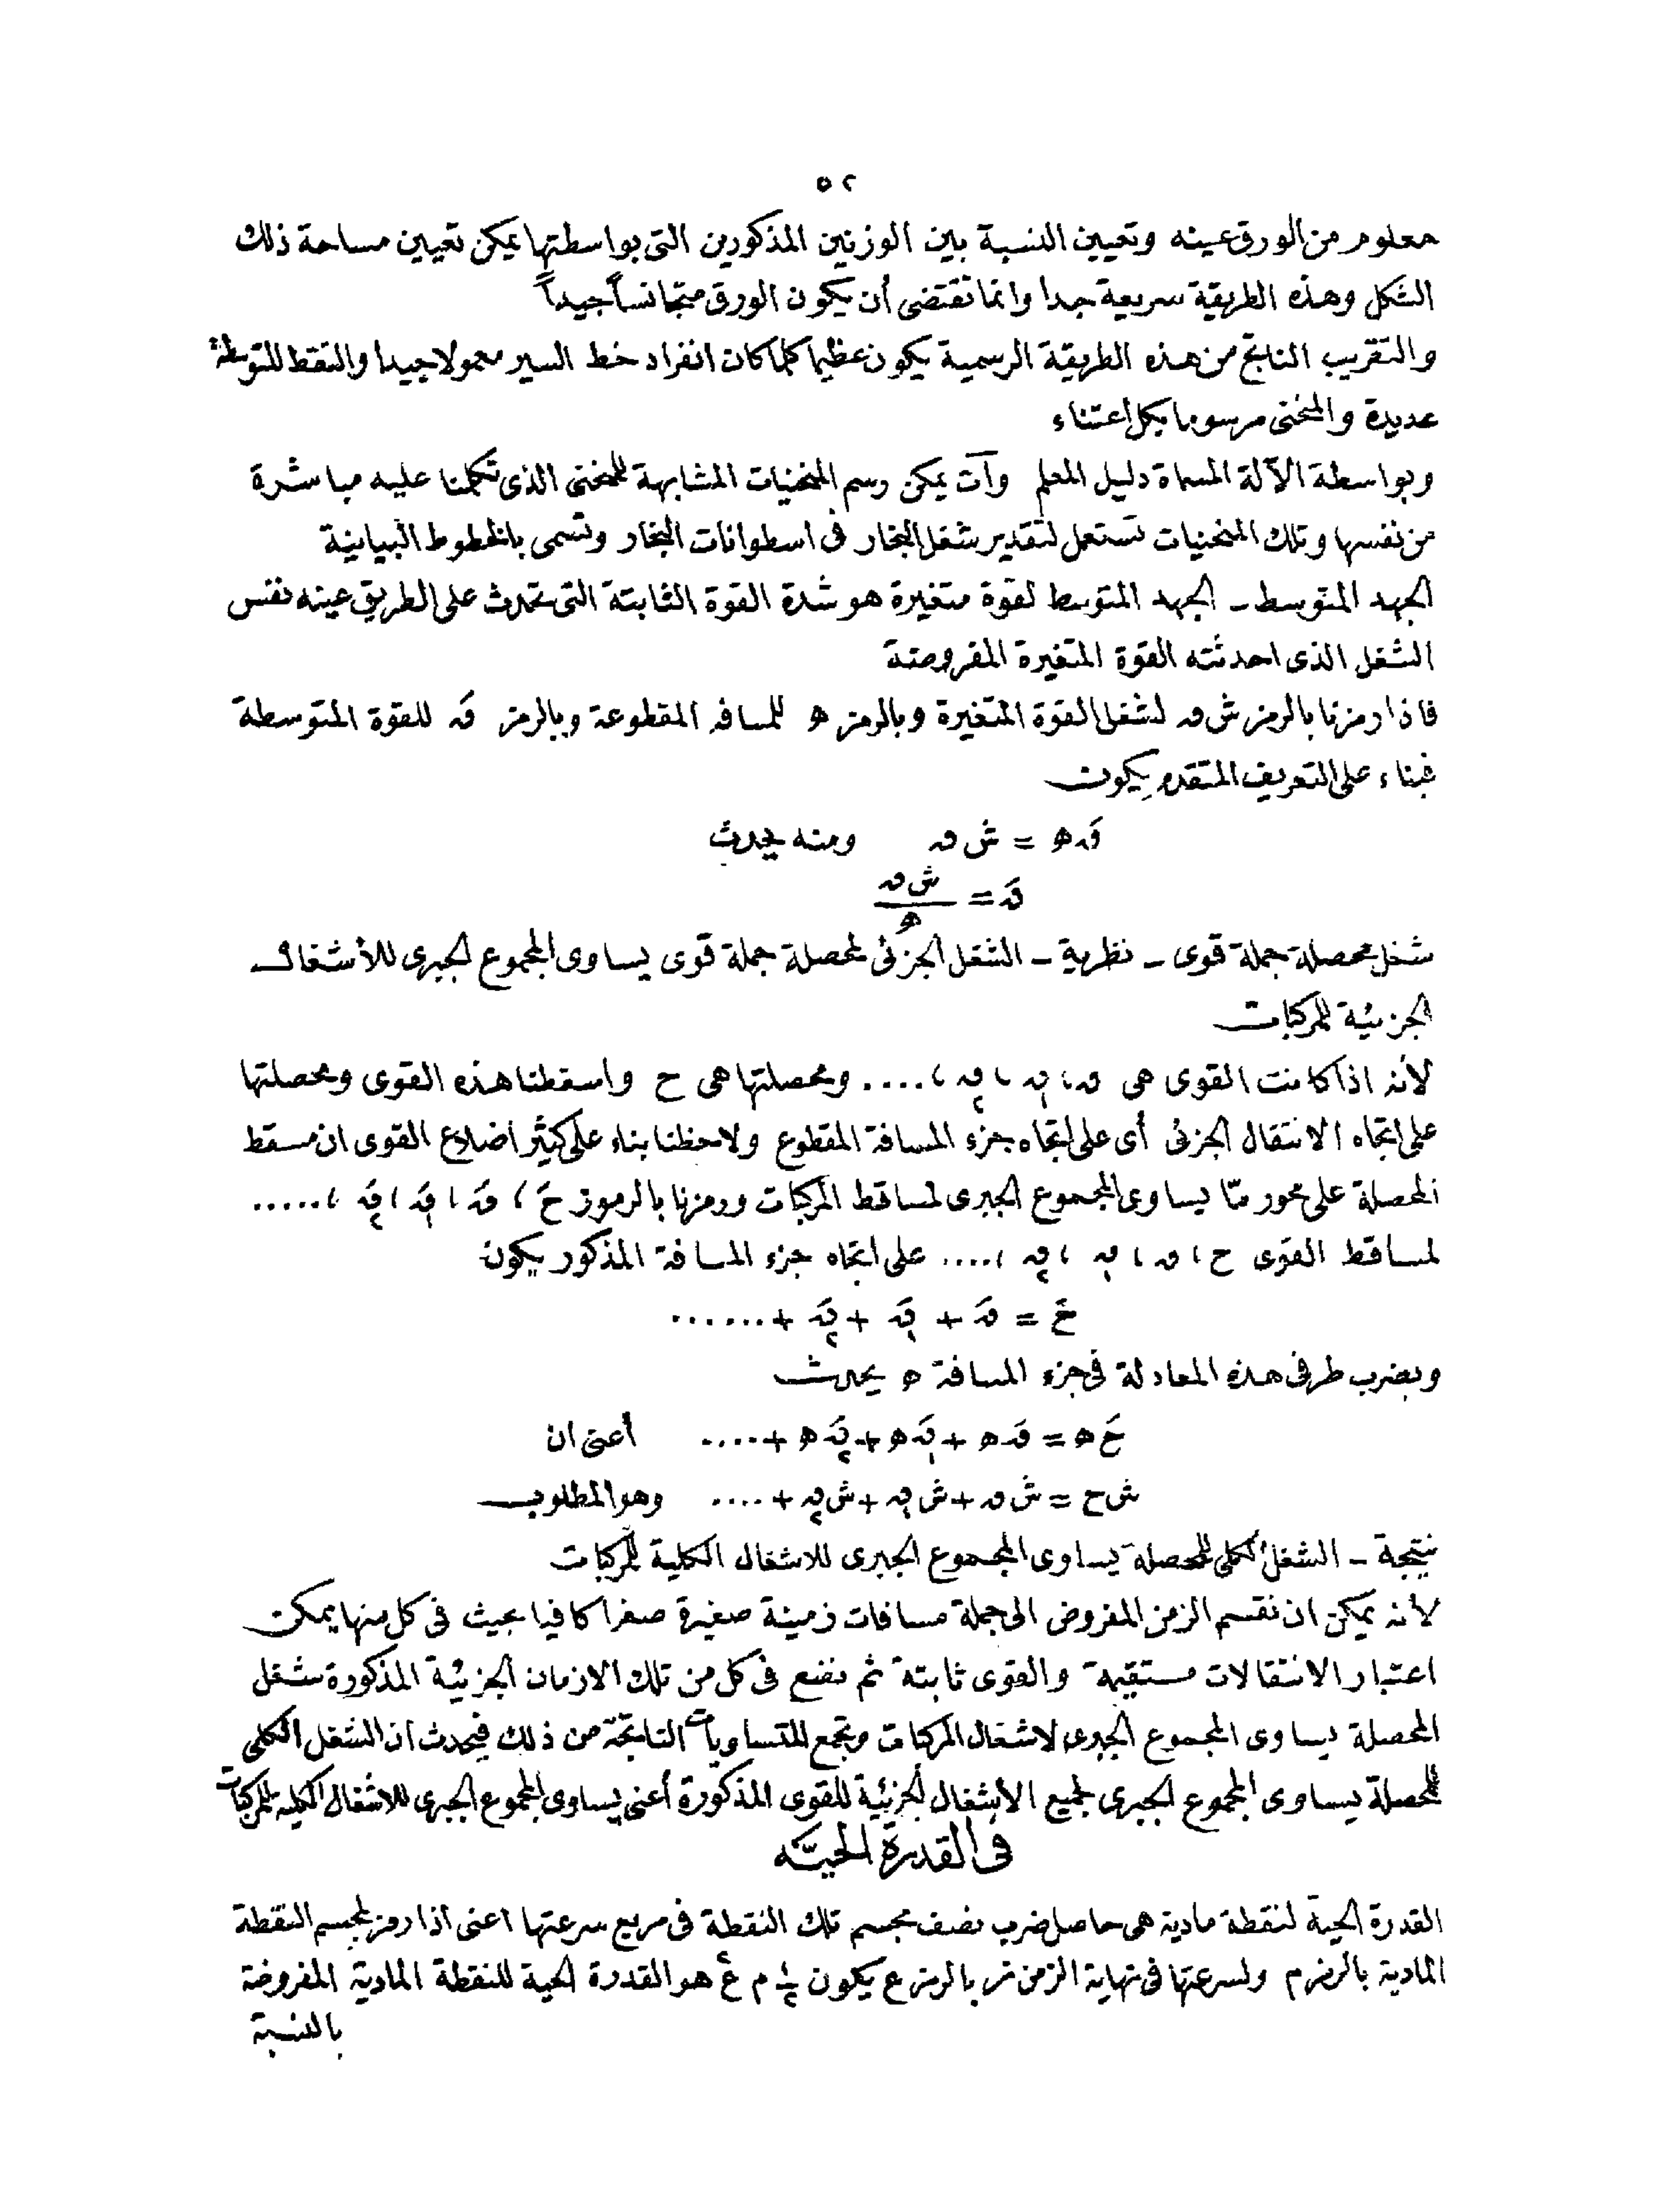 ٥٢
معلوم من الورق عينه وتعيين النسبة بين الوزنين المذكورين التى بواسطتها يمكن تعيين مساحة ذلك
الشكل وهذه الطريقة سريعة جدا وانما تقتضى أن يكون الورق متجانساً جيداً
والتقريب الناتج من هذه الطريقة الرسمية يكون عظيما كلما كان انفراد خط السير معمولا جيدا والنقط المتوسطة
عديدة والمنحنى مرسوما بكل أعتناء
وبواسطة الآلة المسماة دليل المعلم وآت يمكن رسم المنحنيات المشابهة للمنحنى الذى تكلمنا عليه مباشرة
من نفسها وتلك المنحنيات تستعمل لتقدير شغل البخار فى اسطوانات البخار وتسمى بالخطوط البيانية
الجهد المتوسط ـ الجهد المتوسط لقوة متغيرة هو شدة القوة الثابتة التى تحدث على الطريق عينه نفس
الشغل الذى احدثته القوة المتغيرة المفروضة
فاذا رمزنا بالرمز ش ٯ لشغل القوة المتغيرة وبالرمز ه للمسافه المقطوعة وبالرمز ٯَ للقوة المتوسطة
فبناء على التعريف المتقدم يكون
ٯَ ه = ش ٯ ومنه يحدث
ٯَ = ش ٯ / ه
شغل محصلة جملة قوى ـ نظرية ـ الشغل الجزئى لمحصلة جملة قوى يساوى المجموع الجبرى للأشغال
الجزئية للمركبات
لأنه اذا كانت القوى هى ٯ ، ٯ١ ، ٯ٢ ، .... ومحصلتها هى ح واسقطنا هذه القوى ومحصلتها
على اتجاه الانتقال الجزئى أى على اتجاه جزء المسافة المقطوع ولاحظنا بناء على كثير اضلاع القوى ان مسقط
المحصلة على محور مّا يساوى المجموع الجبرى لمساقط المركبات ورمزنا بالرموز حَ ، ٯَ ، ٯَ١ ، ٯَ٢ ، .....
لمساقط القوى ح ، ٯ ، ٯ١ ، ٯ٢ ، .... على اتجاه جزء المسافة المذكور يكون
حَ = ٯَ + ٯَ١ + ٯَ٢ + ......
وبضرب طرفى هذه المعادلة فى جزء المسافة ه يحدث
حَ ه = ٯَ ه + ٯَ١ ه + ٯَ٢ ه + .... أعنى ان
ش ح = ش ٯ + ش ٯ١ + ش ٯ٢ + .... وهو المطلوب
نتيجة ـ الشغل الكلى للمحصلة يساوى المجموع الجبرى للاشغال الكلية للمركبات
لأنه يمكن ان نقسم الزمن المفروض الى جملة مسافات زمينة صغيرة صغرا كافيا بحيث فى كل منها يمكن
اعتبار الانتقالات مستقيمة والقوى ثابتة ثم نضع فى كل من تلك الازمان الجزئية المذكورة شغل
المحصلة يساوى المجموع الجبرى لاشغال المركبات ونجمع المتساويات الناتجة من ذلك فيحدث ان الشغل الكلى
للمحصلة يساوى المجموع الجبرى لجميع الأشغال الجزئية للقوى المذكورة أعنى يساوى المجموع الجبرى للاشغال الكلية للمركبات
فى القدرة الحيّه
القدرة الحية لنقطة مادية هى حاصل ضرب نصف مجسم تلك النقطة فى مربع سرعتها اعنى اذا رمز لمجسم النقطة
المادية بالرمز م ولسرعتها فى نهاية الزمن ز بالرمز ع يكون ١/٢ م ع٢ هو القدرة الحية للنقطة المادية المفروضة
بالنسبة